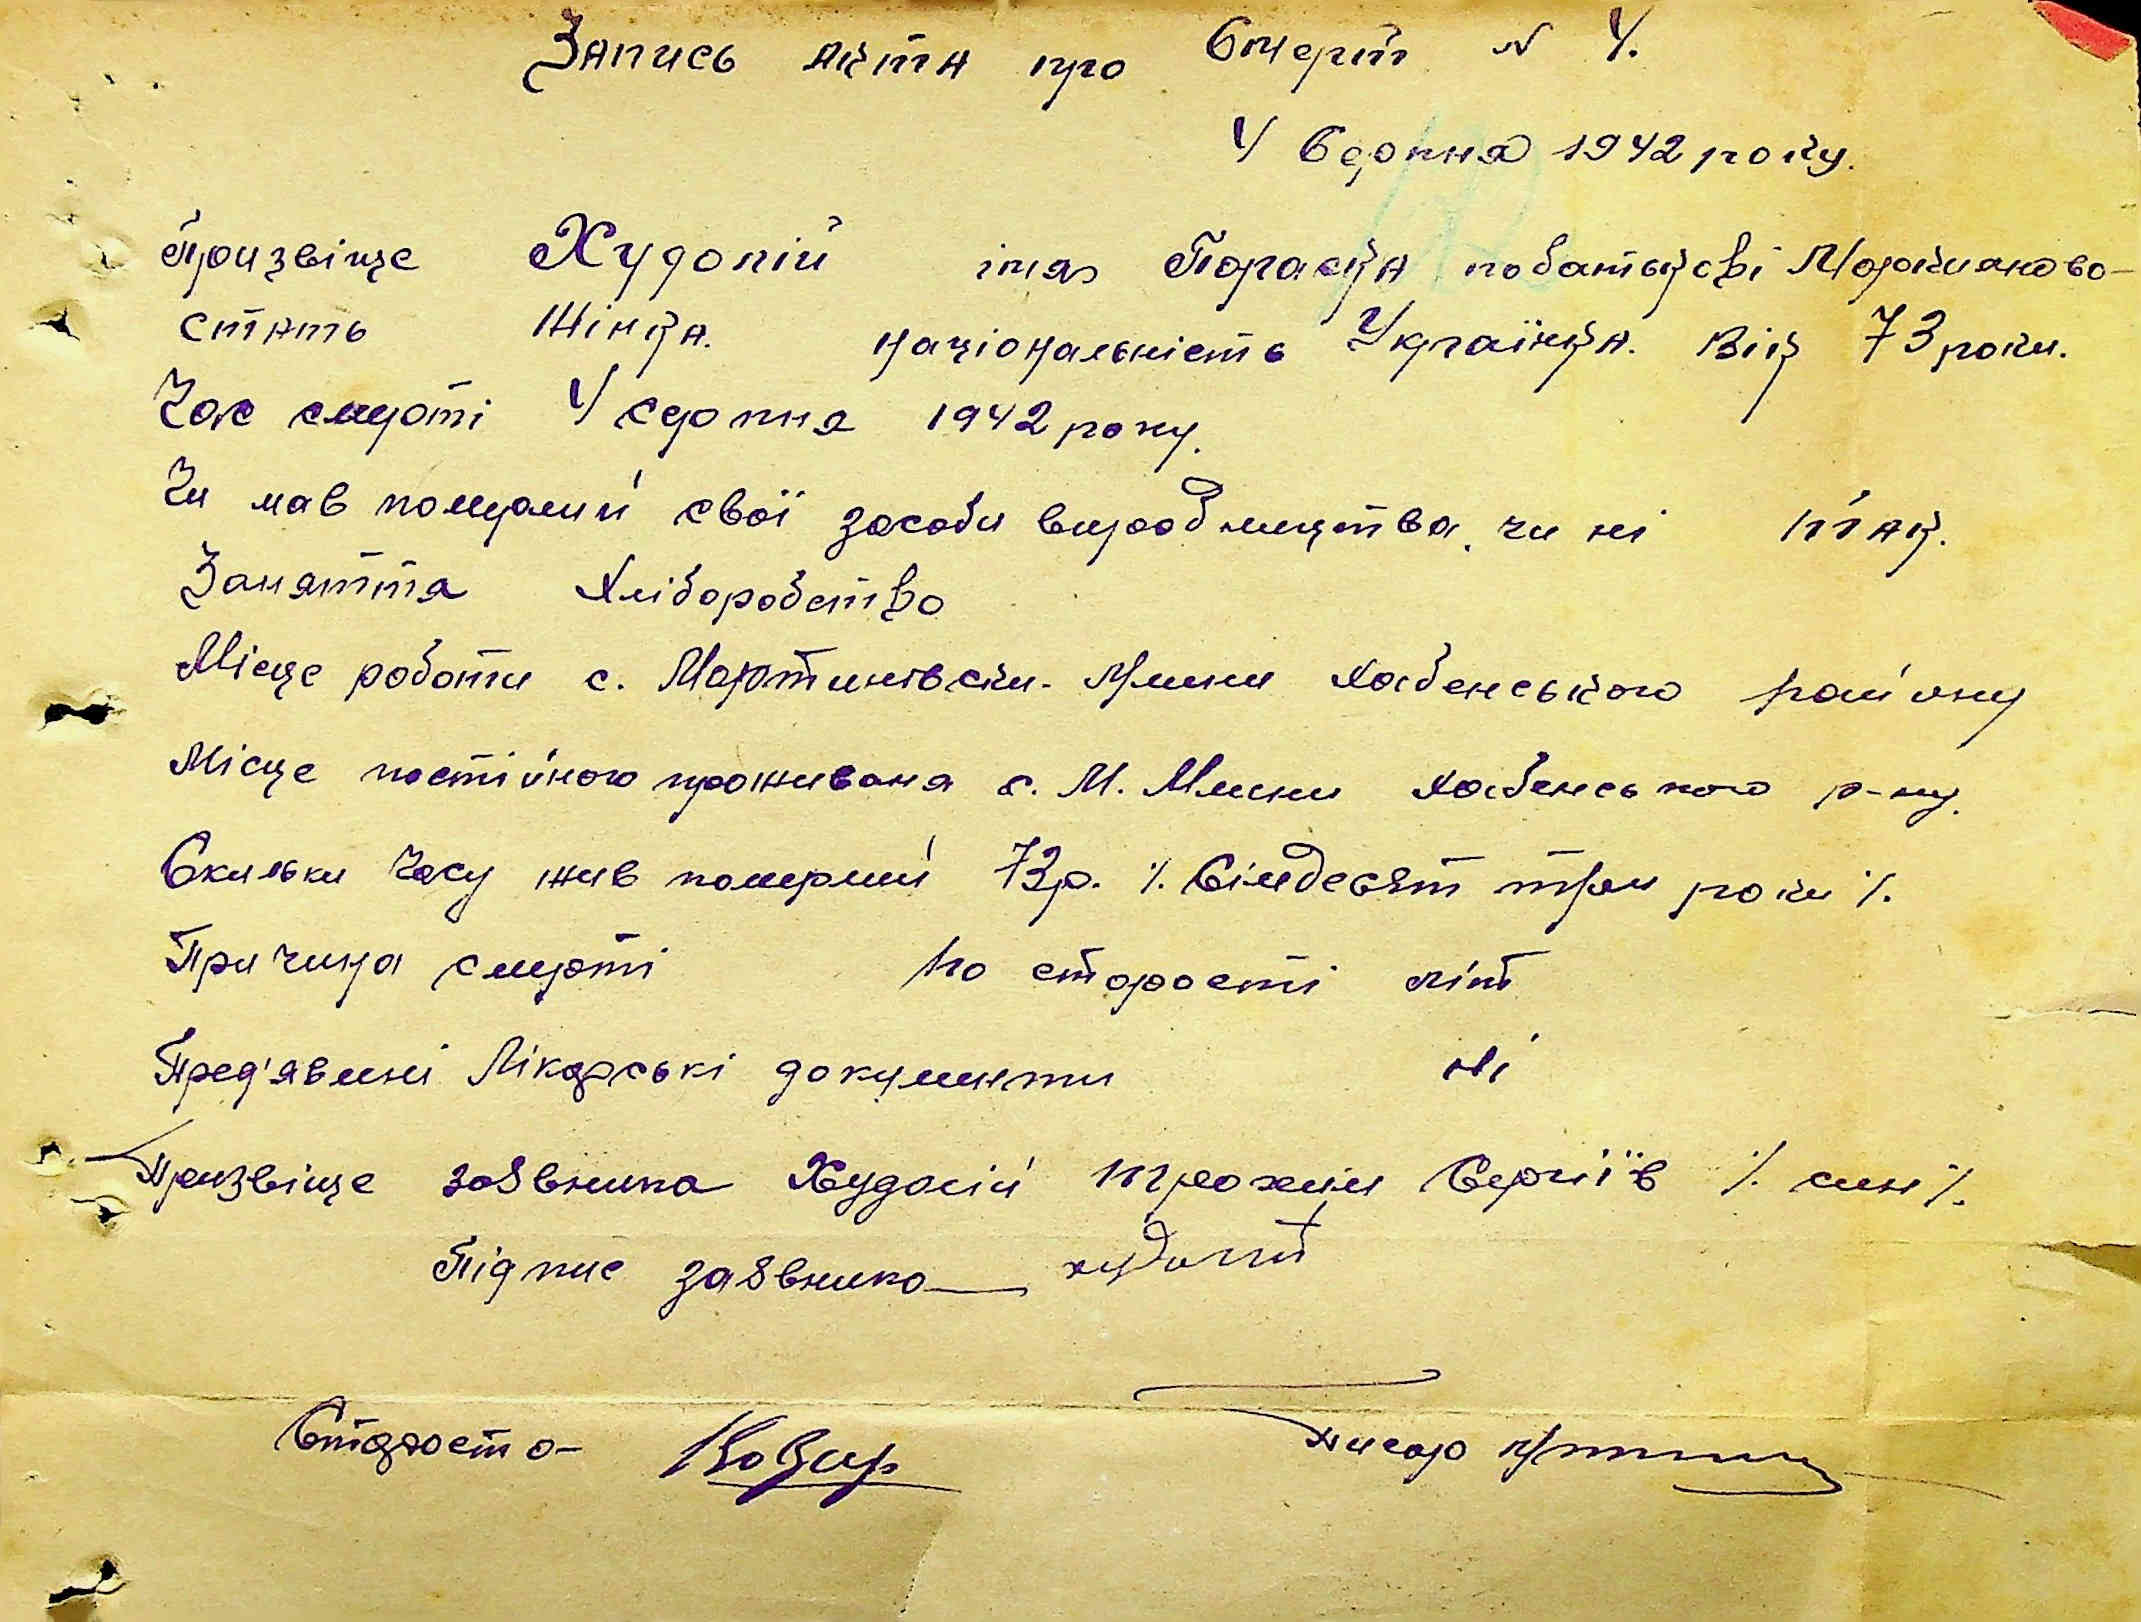 Запись акта про Смерть № 4.
4 Серпня 1942 року.
Призвіще Худолій імя Пораска побатькові Моркианово-
стать Жінка. національність Українка. Вік 73 роки.
Час смерті 4 серпня 1942 року.
Чи мав померлий свої засоби виробництва, чи ні так.
Заняття Хліборобство
Місце роботи с. Мартиновски-Млини Хабенського району
Місце постійного проживаня с. М. Млини Хабенського р-ну.
Скильки часу жив померлий 73р. /. Сімдесят три роки /.
Причина смерті По старості літ
Пред'явлині Лікарські документи ні
Призвіще заявника Худолій Трохим Сергіїв /. син /.
Підпис заявника худолій
Староста-
Писар